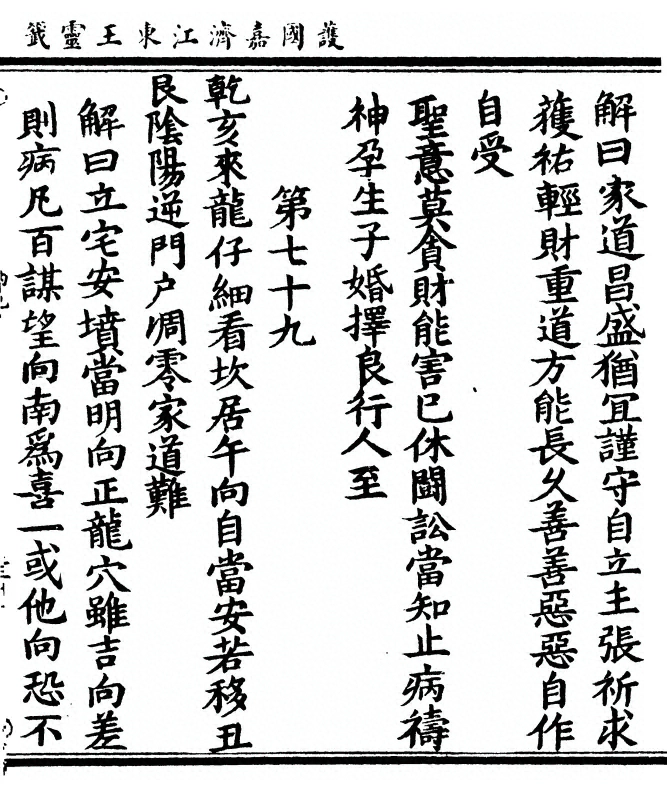 護國嘉濟江東王靈籤
解曰家道昌盛猶冝謹守自立主張祈求
獲祐輕財重道方能長久善善惡惡自作
自受
聖意莫貪財能害已休鬪訟當知止病禱
神孕生子婚擇良行人至
第七十九
乾亥來龍仔細看坎居午向自當安若移丑
艮陰陽逆門户凋零家道難
解曰立宅安墳當明向正龍穴雖吉向差
則病凡百謀望向南爲喜一或他向恐不